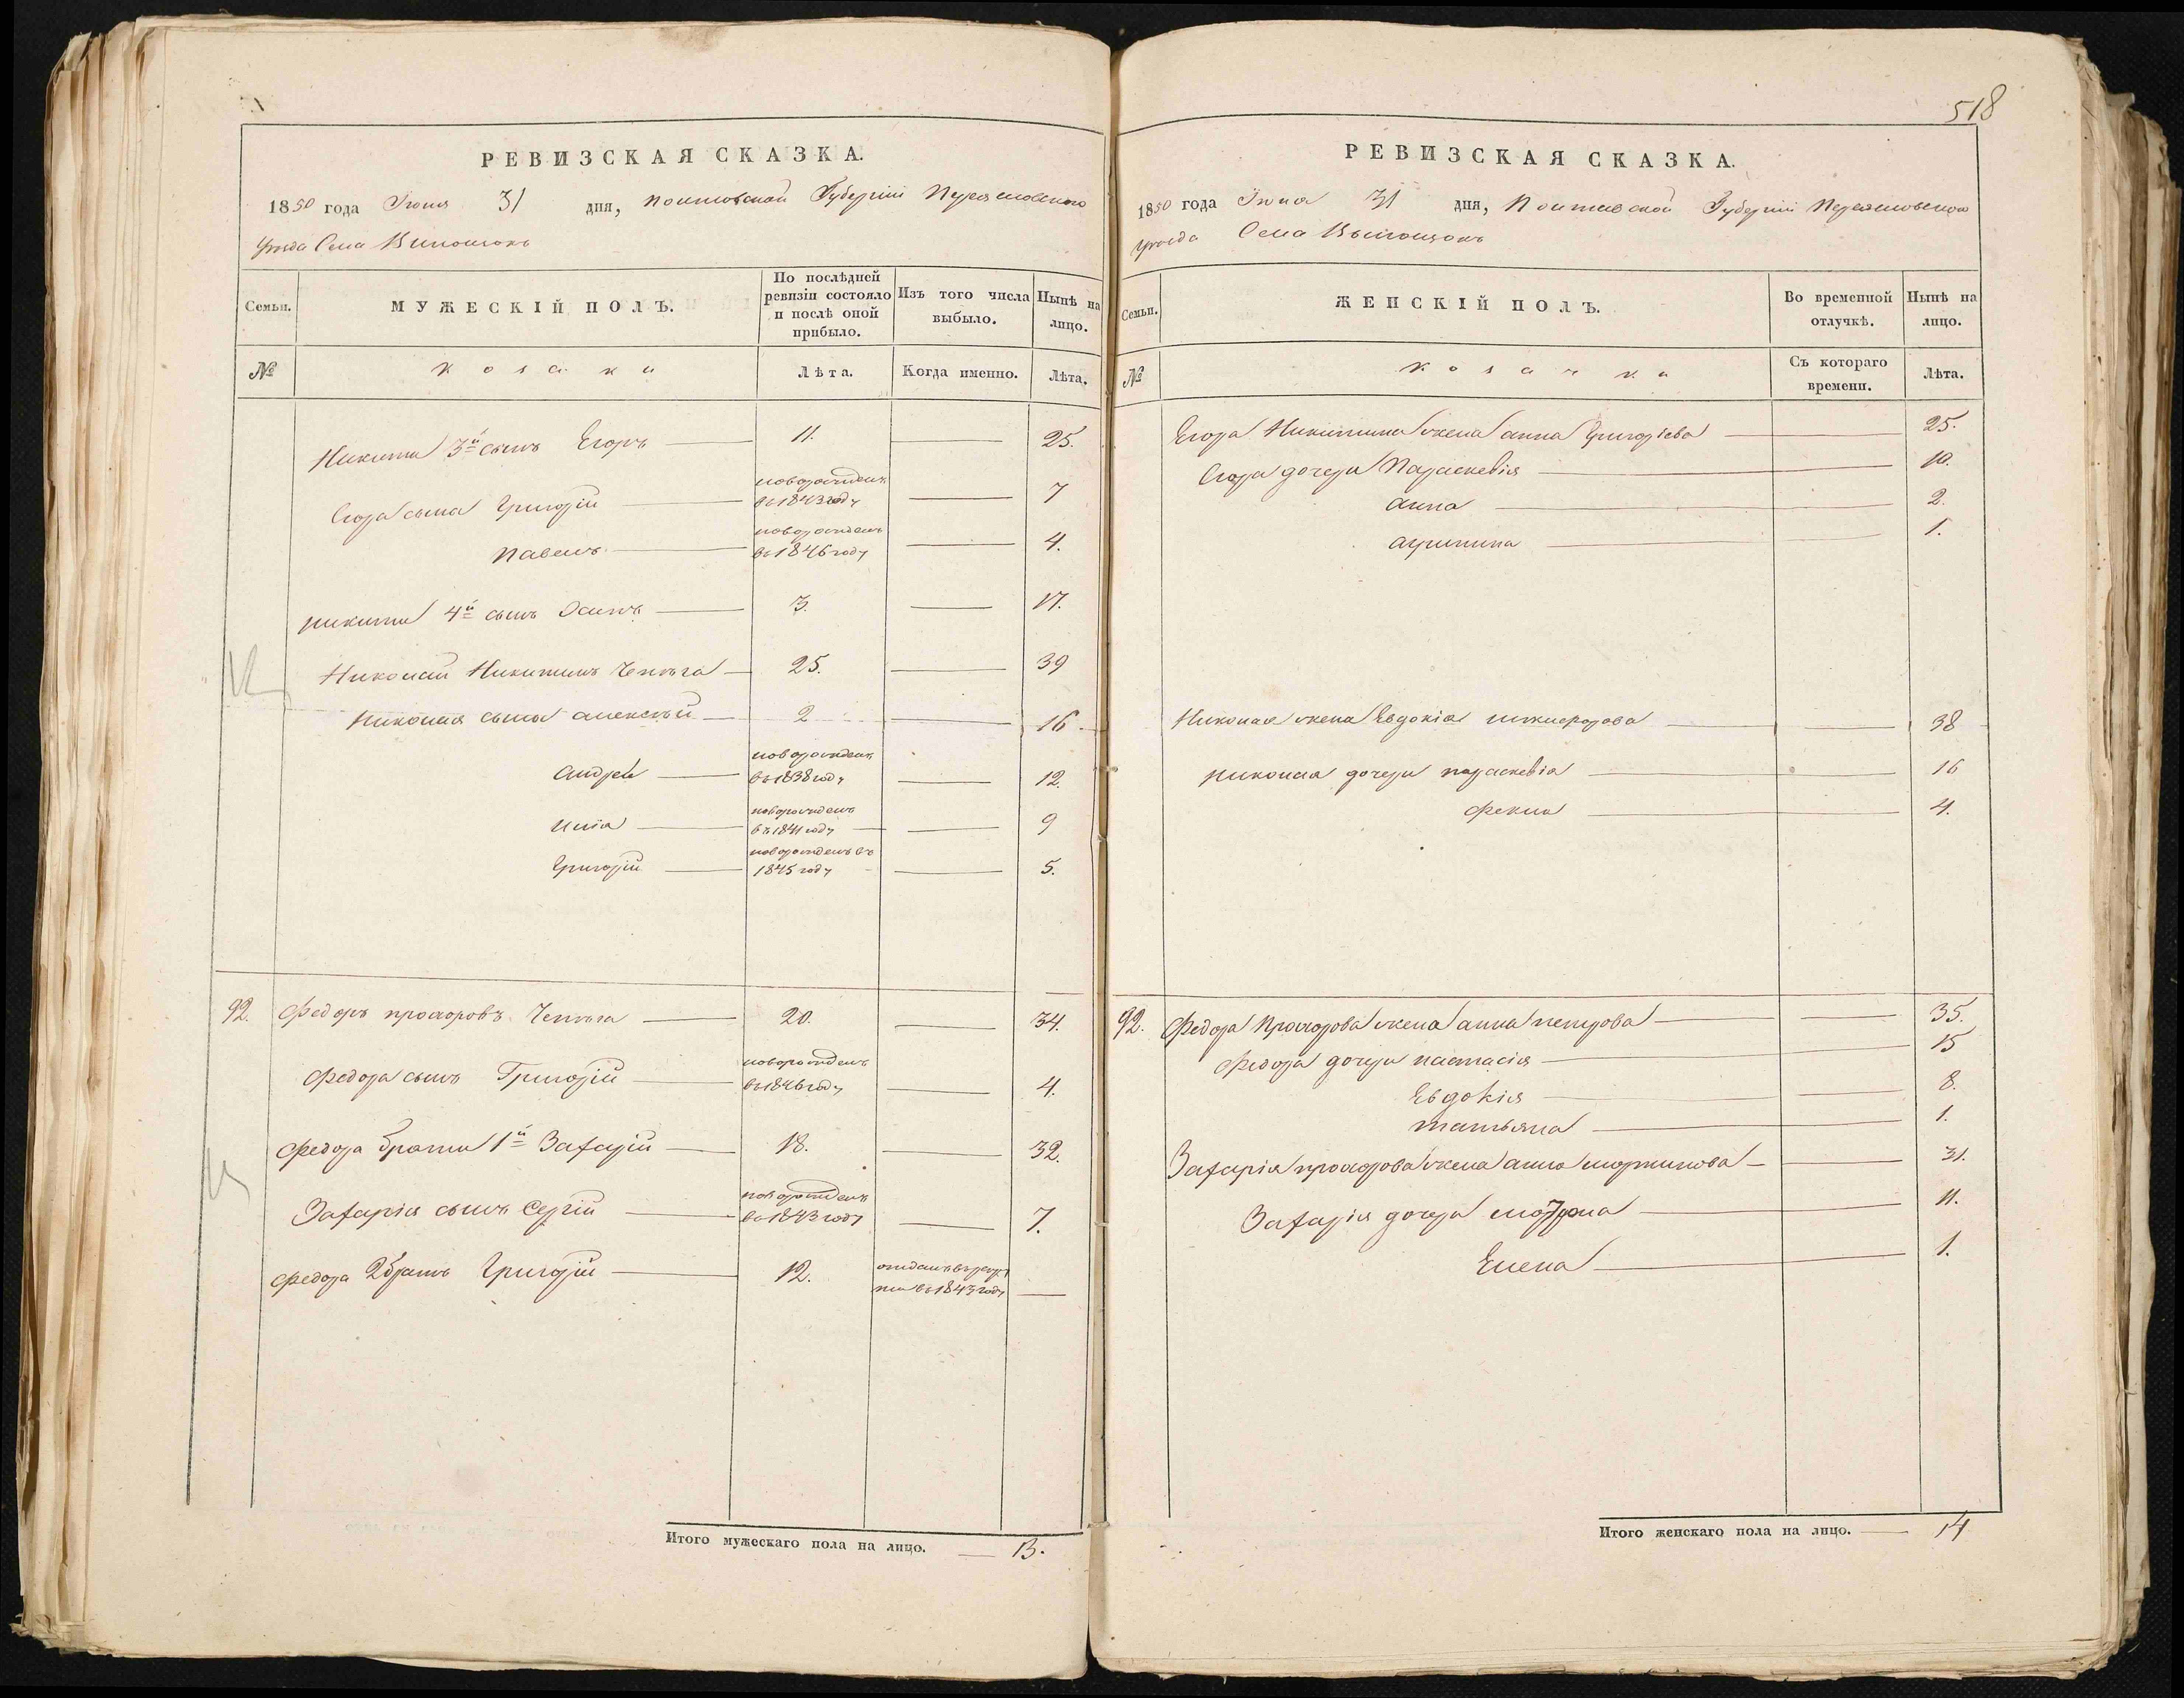 518
РЕВИЗСКАЯ СКАЗКА.
1850 года Іюня 31 дня, Полтовской Губерніи Переяславского
уезда Села Випошокъ
Семьи. МУЖЕСКІЙ ПОЛЪ. По послѣдней ревизіи состояло и послѣ оной прибыло. Изъ того числа выбыло. Нынѣ на лицо.
№ козаки Лѣта. Когда именно. Лѣта.
Никиты 3й сынъ Егоръ 11. 25.
Егора сына Григорій новорожденъ въ 1843 году 7
Павелъ новорожденъ въ 1846 году 4.
Никиты 4й сынъ Осипъ 3. 17.
Николай Никитинъ Чепѣга 25. 39
Николая сына Алексѣй 2 16
Андрей новорожденъ въ 1838 году 12.
Илія новорожденъ въ 1841 году 9
Григорій новорожденъ въ 1845 году 5.
92. Федоръ Прохоровъ Чепѣга 20. 34.
Федора сынъ Григорій новорожденъ въ 1846 году 4.
Федора браты 1й Захарій 18. 32.
Захарія сынъ Сергій новорожденъ въ 1843 году 7.
Федора 2 братъ Григорій 12. отданъ въ рекруты въ 1843 году
Итого мужескаго пола на лицо. 13.
РЕВИЗСКАЯ СКАЗКА.
1850 года Іюня 31 дня, Полтавской Губерніи Переяславского
уезда Села
Семьи. ЖЕНСКІЙ ПОЛЪ. Во временной отлучкѣ. Нынѣ на лицо.
№ козачки Съ котораго времени. Лѣта.
Егора Никитина жена Анна Григорієва 25.
Егора дочери Параскевія 10.
Анна 2.
Агрипина 1.
Николая жена Евдокія 38
Николая дочери Параскевія 16
Фекла 4.
92. Федора Прохорова жена Анна Петрова 35.
Федора дочери Настасія 15
Евдокія 8.
Татьяна 1.
Захарія Прохорова жена Анна Мартинова 31.
Захарія дочери Мотрона 11.
Елена 1.
Итого женскаго пола на лицо. 14